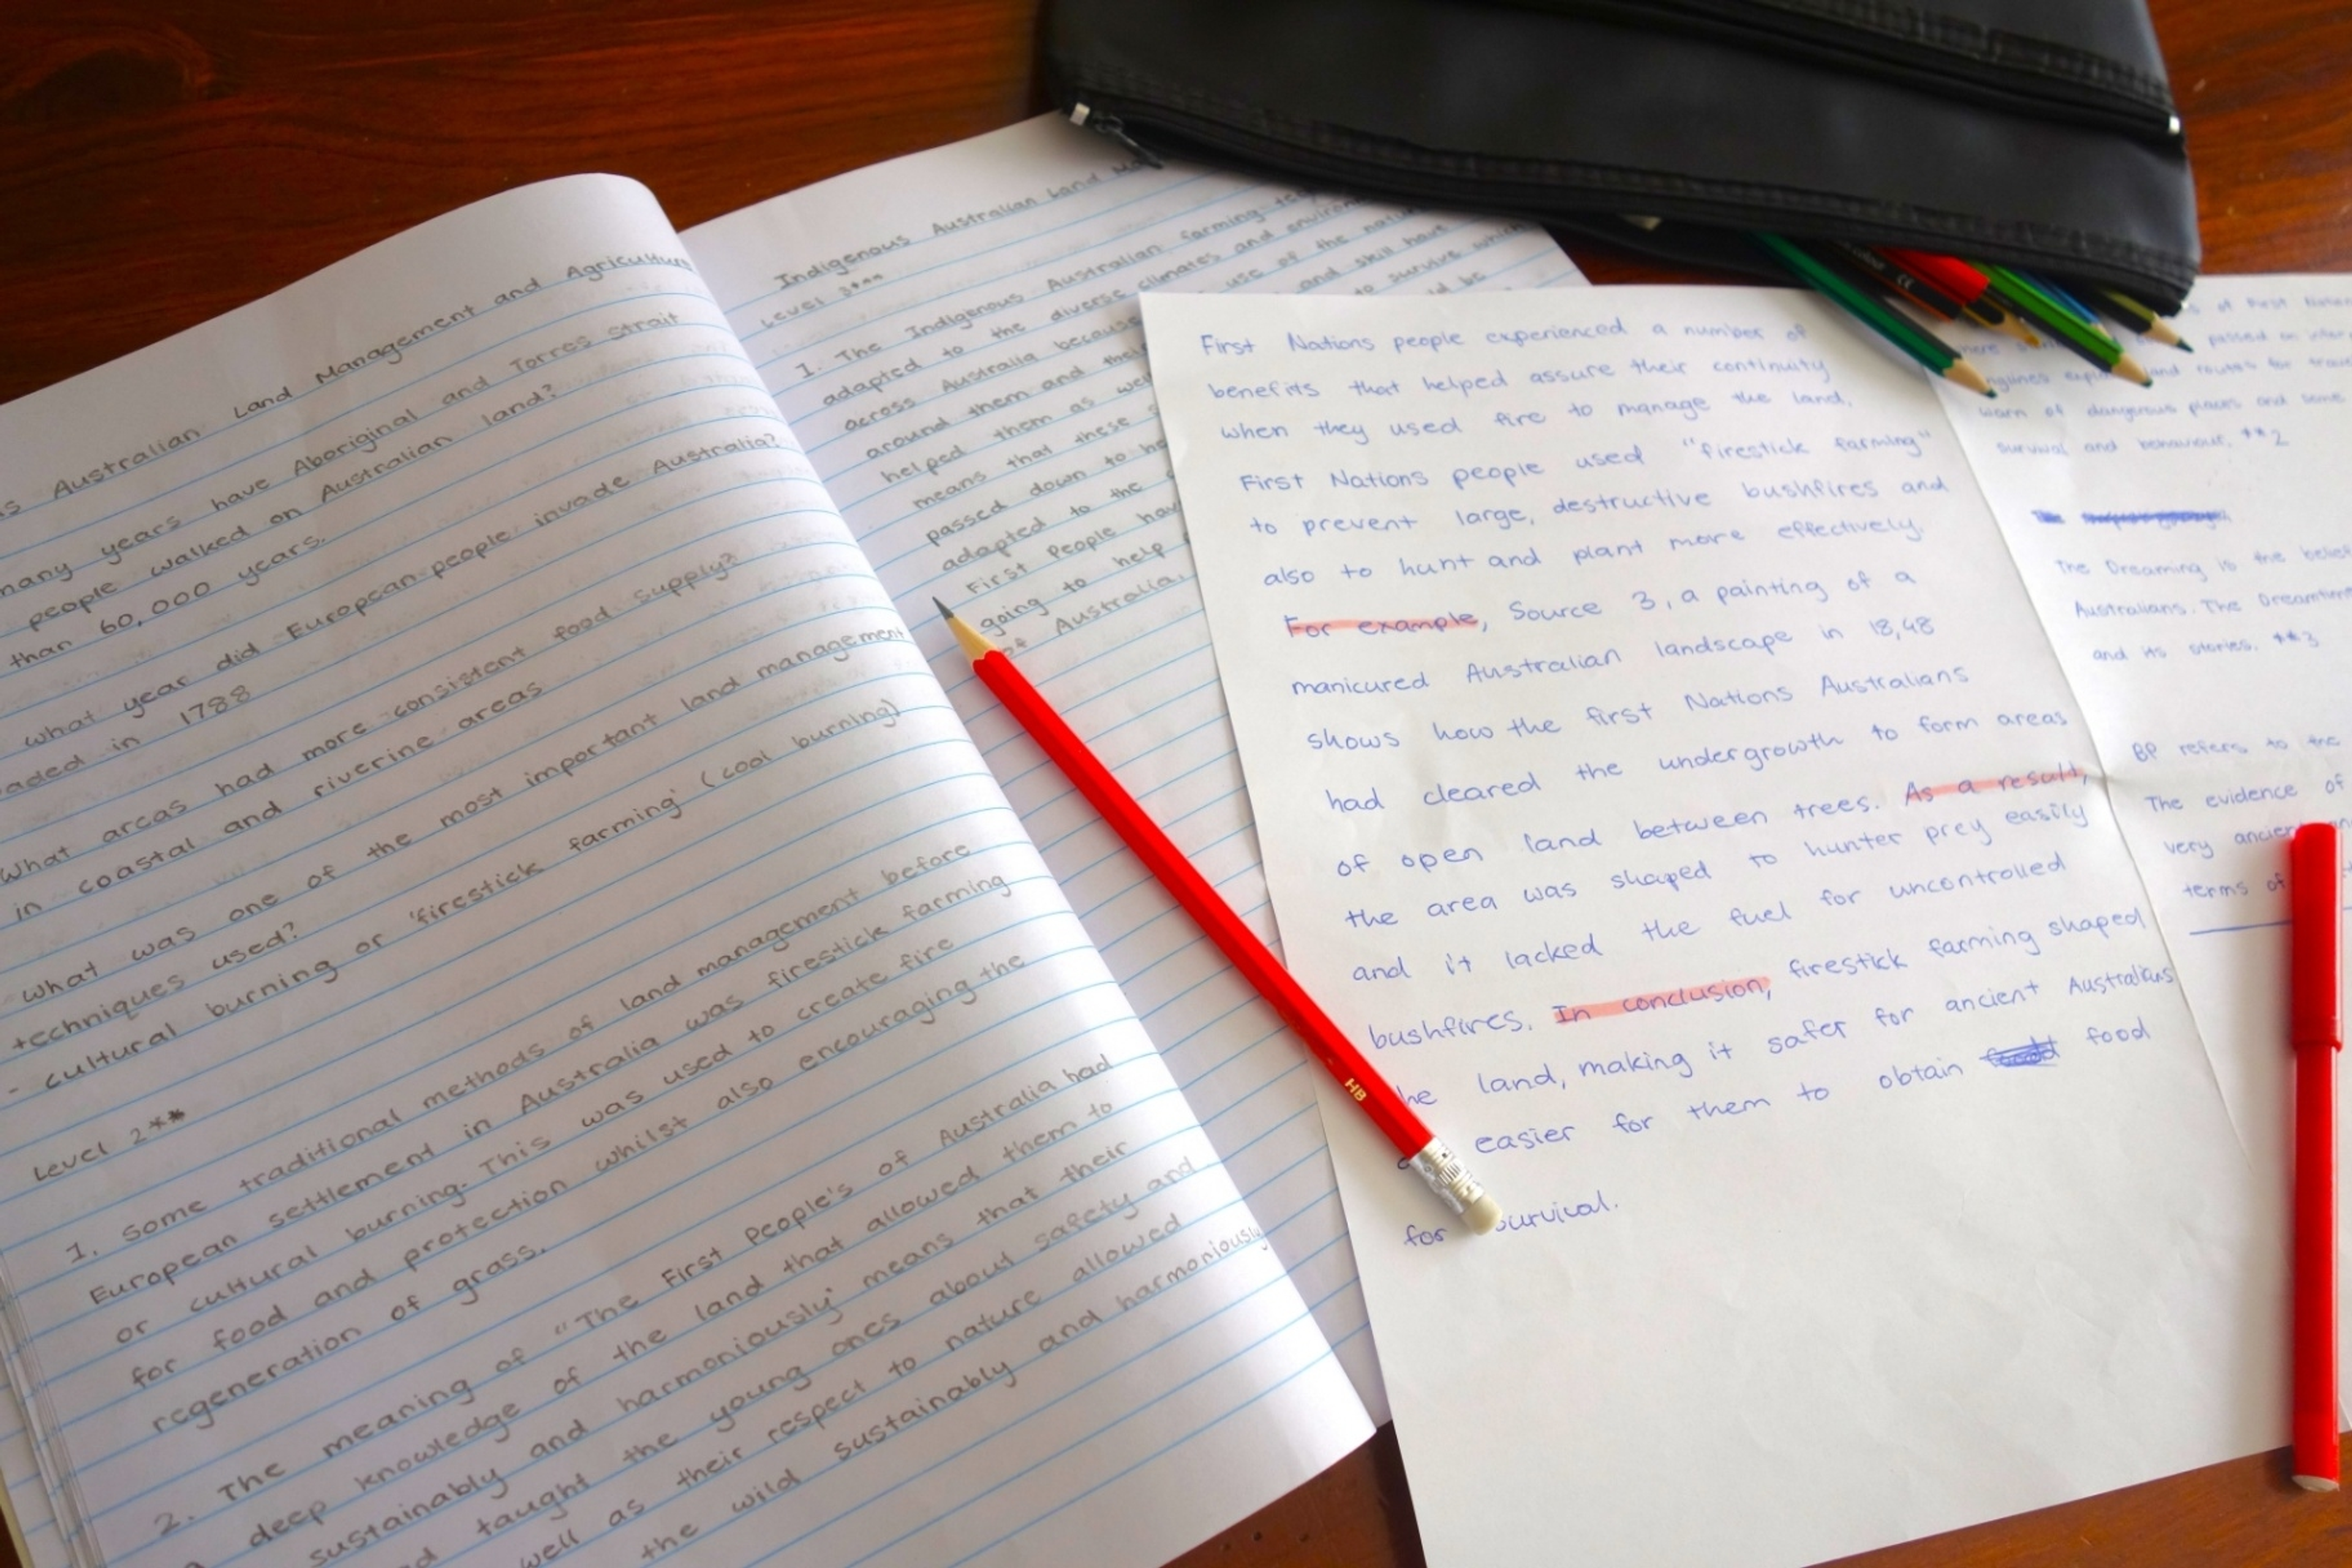 Australian Land Management and Agriculture
many years have Aboriginal and Torres strait
people walked on Australian land?
than 60,000 years.
what year did European people invade Australia?
in 1788
What areas had more consistent food supply?
in coastal and riverine areas
What was one of the most important land management
techniques used?
- cultural burning or 'firestick farming' (cool burning)
Level 2**
1. Some traditional methods of land management before
European settlement in Australia was firestick farming
or cultural burning. This was used to create fire
for food and protection whilst also encouraging the
regeneration of grass.
2. The meaning of "The First people's of Australia had
deep knowledge of the land that allowed them to
sustainably and harmoniously' means that their
taught the young ones about safety and
well as their respect to nature allowed
the wild sustainably and harmoniously
Indigenous Australian Land
Level 3***
1. The Indigenous Australian farming
adapted to the diverse climates and
across Australia because use of the
around them and their and skill have
helped them as well to survive which
means that these be
passed down to
adapted to the
First People have
going to help
of Australia.
First Nations people experienced a number of
benefits that helped assure their continuity
when they used fire to manage the land.
First Nations people used "firestick farming"
to prevent large, destructive bushfires and
also to hunt and plant more effectively.
For example, Source 3, a painting of a
manicured Australian landscape in 18,48
shows how the first Nations Australians
had cleared the undergrowth to form areas
of open land between trees. As a result,
the area was shaped to hunter prey easily
and it lacked the fuel for uncontrolled
bushfires. In conclusion, firestick farming shaped
he land, making it safer for ancient Australians
easier for them to obtain food
for survival.
of First
passed on
land routes for
warn of dangerous places and some
survival and behaviour. **2
The Dreaming is the belief
Australians. The Dreamtime
and its stories. **3
BP refers to the
The evidence of
very ancient
terms of
HB